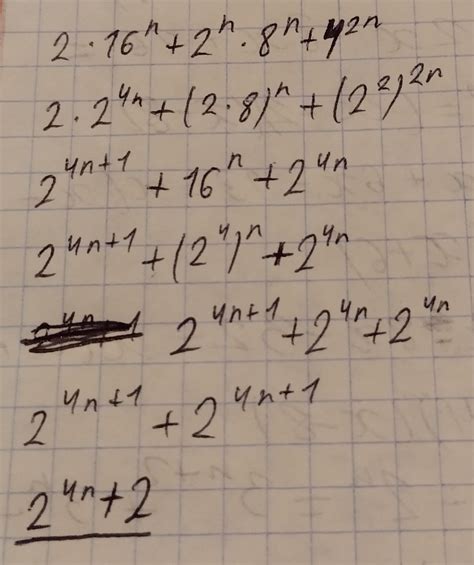 2 · 16ⁿ + 2ⁿ · 8ⁿ + 4²ⁿ
2 · 2⁴ⁿ + (2 · 8)ⁿ + (2²)²ⁿ
2⁴ⁿ⁺¹ + 16ⁿ + 2⁴ⁿ
2⁴ⁿ⁺¹ + (2⁴)ⁿ + 2⁴ⁿ
2⁴ⁿ⁺¹ + 2⁴ⁿ + 2⁴ⁿ
2⁴ⁿ⁺¹ + 2⁴ⁿ⁺¹
2⁴ⁿ⁺²